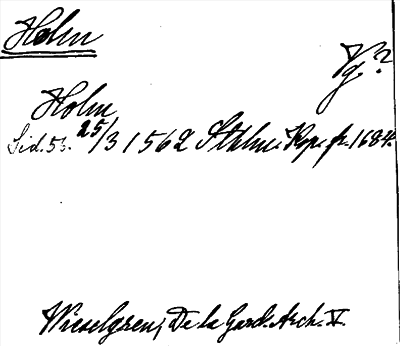 Holm
Vg.?
Holm
Sid. 56. 25/3 1562 Sthlm. Kop. fr. 1684.
Wieselgren, De la Gard. Arch. V.